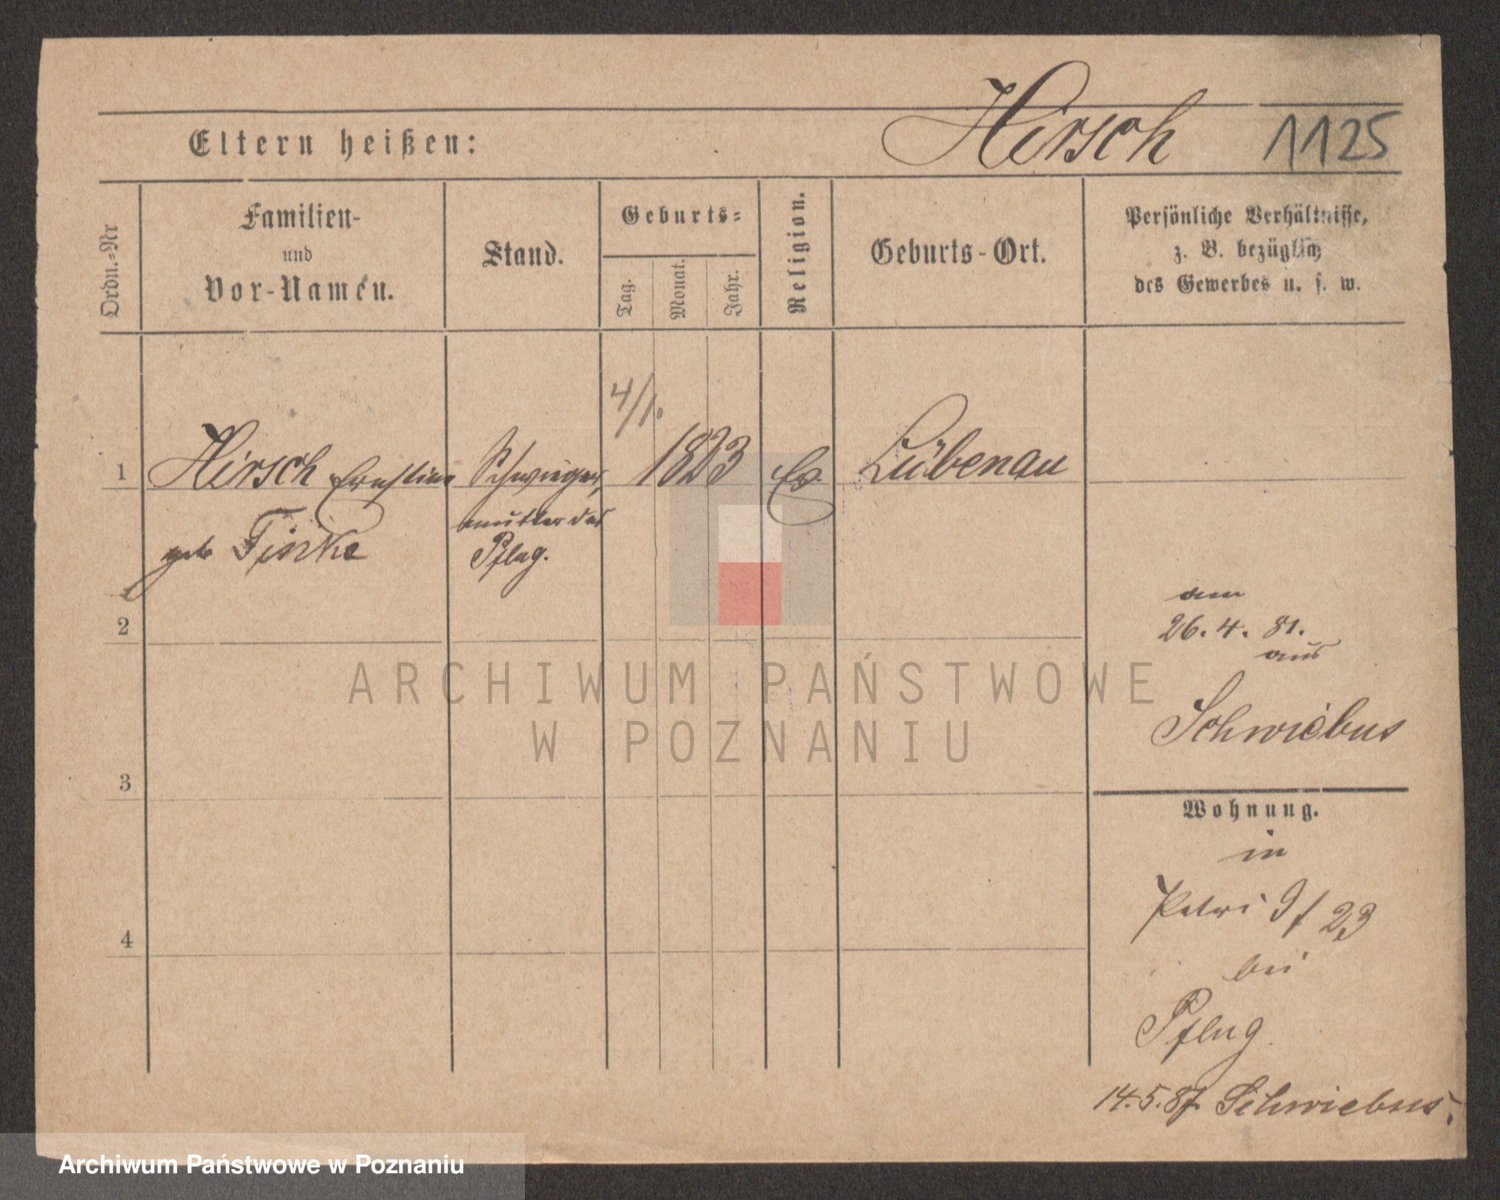 Hirsch 1125
Eltern heißen:
Ordn.-Nr
Familien-
und
Vor-Namen.
Stand.
Geburts-
Tag.
Monat.
Jahr.
Religion.
Geburts-Ort.
Persönliche Verhältnisse,
z. B. bezüglich
des Gewerbes u. s. w.
4/1.
1 Hirsch Ernstine Schwieger, 1823 Ev. Lübenau
geb Finke mutter des
Pflug.
2
3
4
am
26. 4. 81.
aus
Schwiebus
Wohnung.
in
Petri 9/23
bei
Pflug.
14.5.87. Schwiebus.
ARCHIWUM PAŃSTWOWE
W POZNANIU
Archiwum Państwowe w Poznaniu